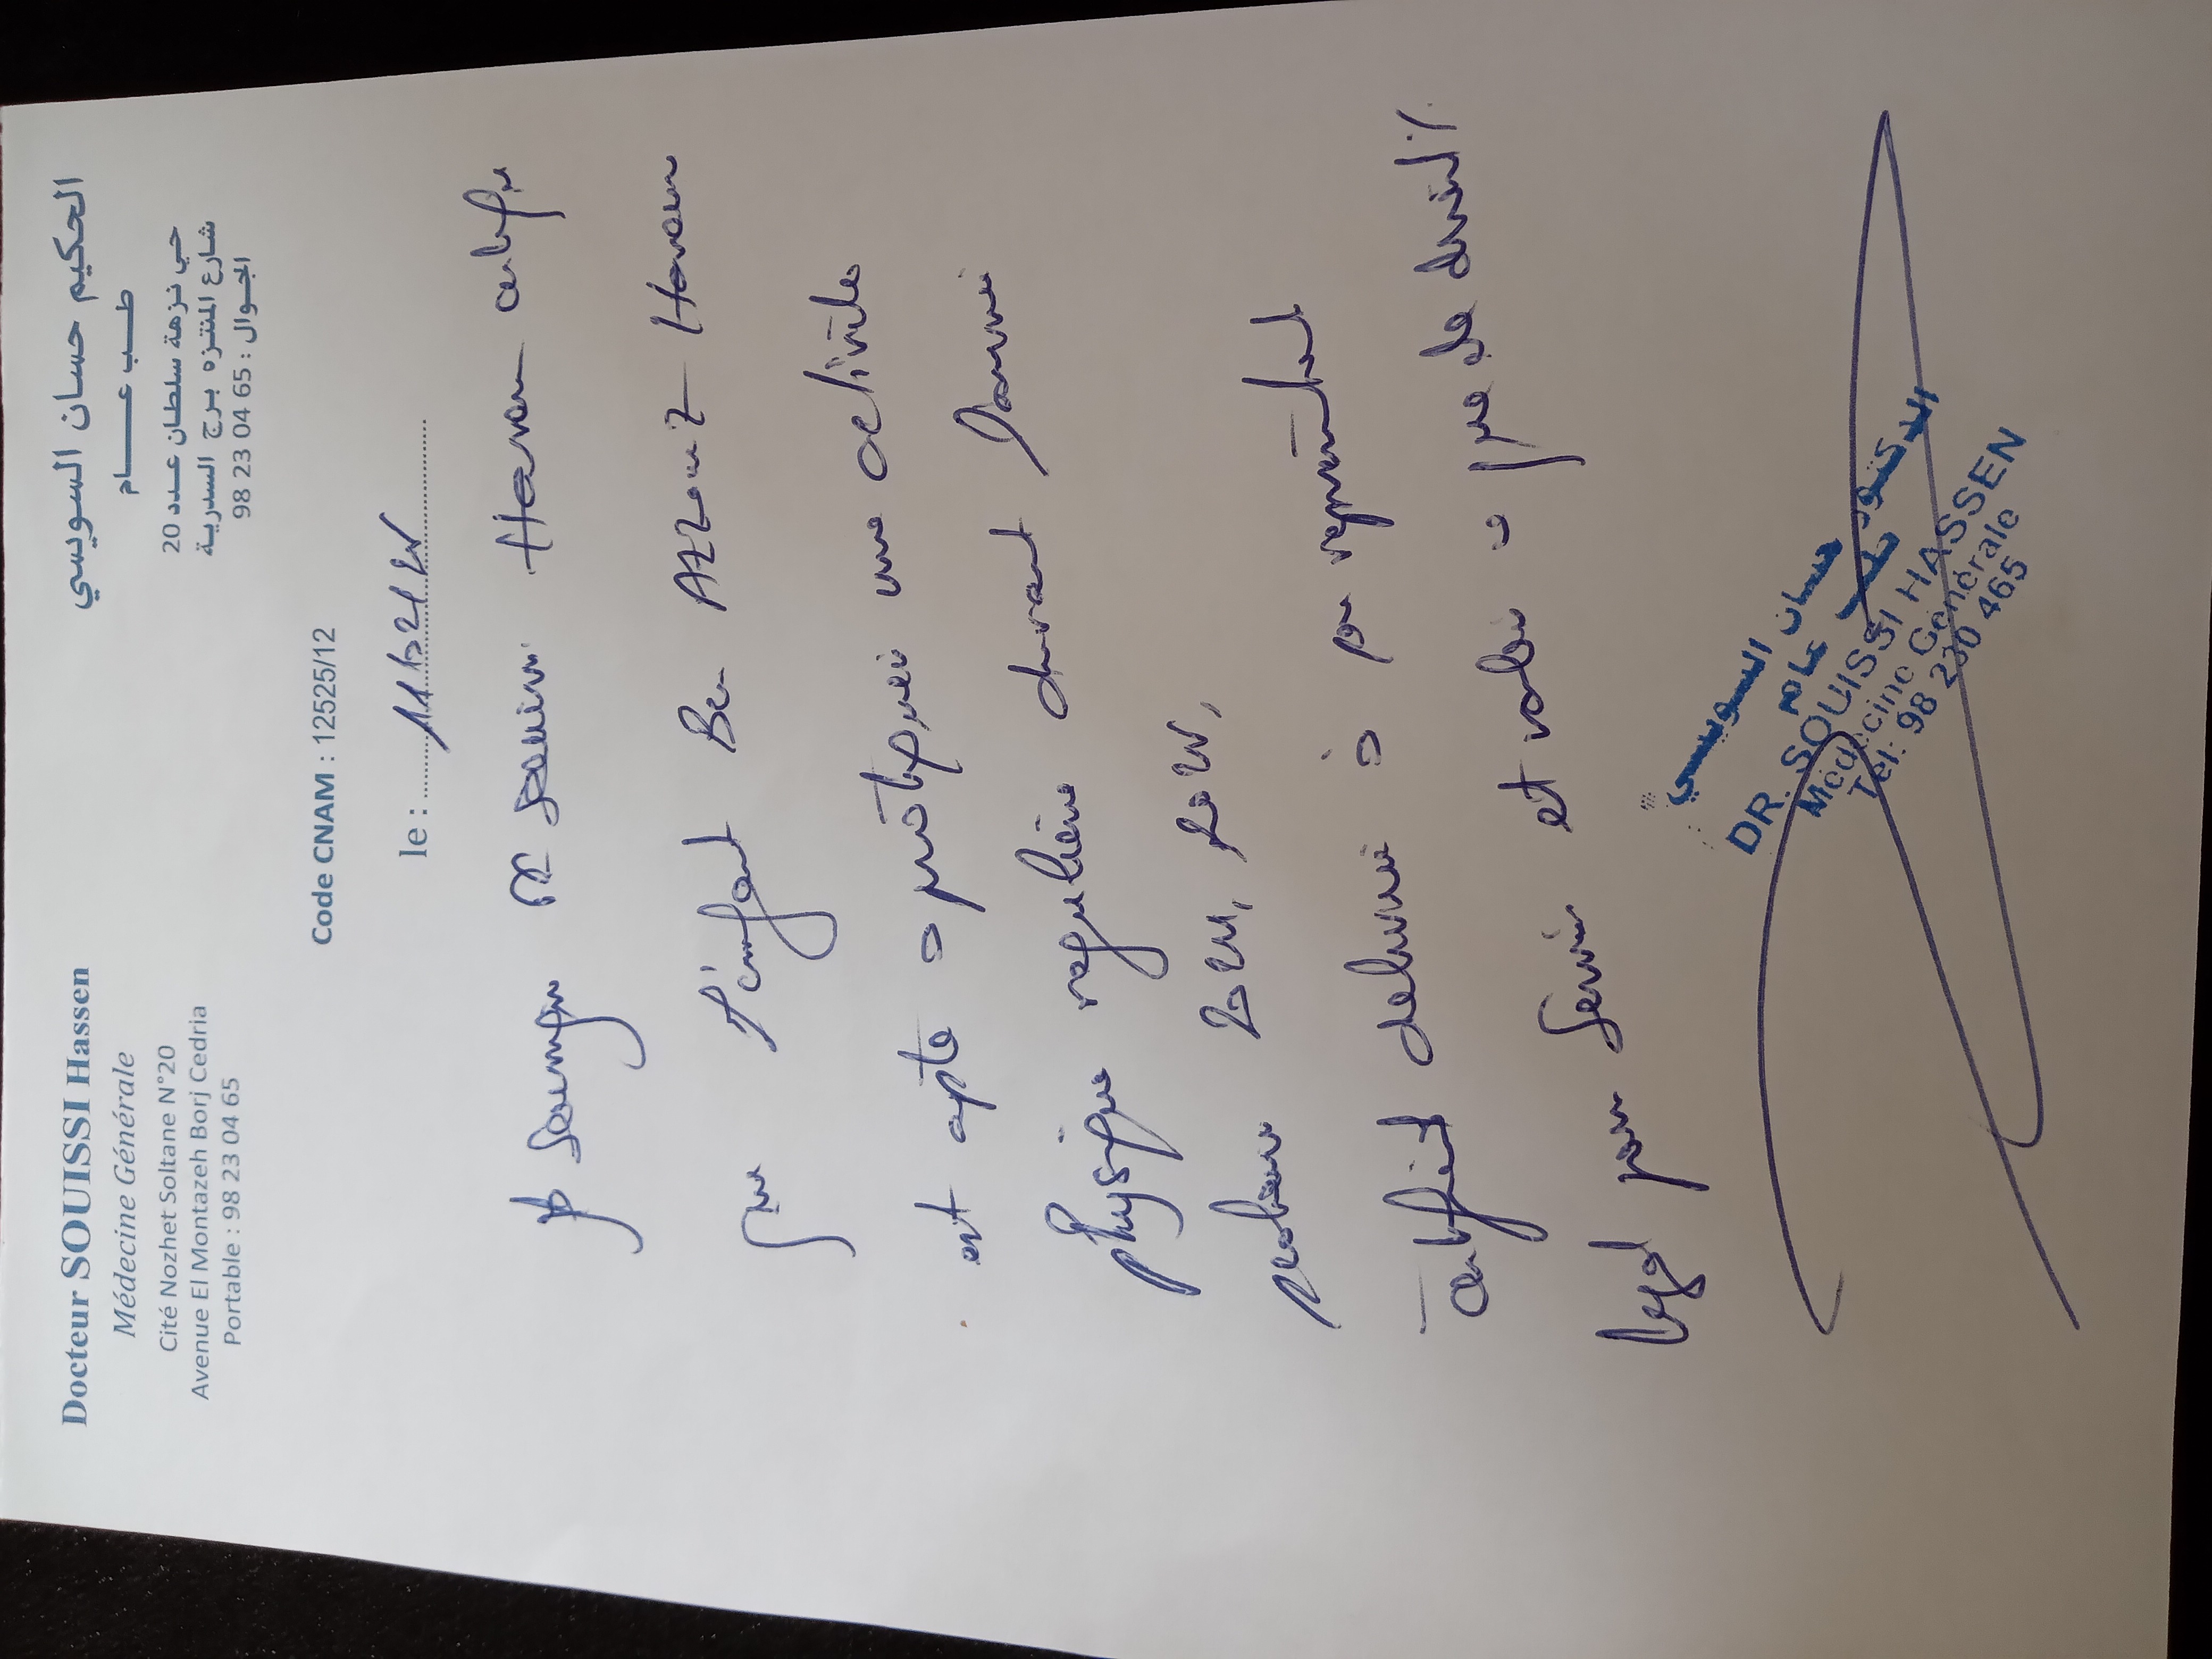 Docteur SOUISSI Hassen
Médecine Générale
Cité Nozhet Soltane N°20
Avenue El Montazeh Borj Cedria
Portable : 98 23 04 65
الحكيم حسان السويسي
طب عام
حي نزهة سلطان عدد 20
شارع المنتزه برج السدرية
الجوال : 98 23 04 65
Code CNAM : 12525/12
le :
Je soussigné Dr Souissi Hassen certifie
que l'enfant Ben Azzouz Haroun
est apte à pratiquer une activité
physique régulière durant l'année
scolaire
certificat délivré à
légal pour servir et valoir ce que de droit
الدكتور حسان السويسي
طب عام
DR. SOUISSI HASSEN
Médecine Générale
Tél: 98 230 465